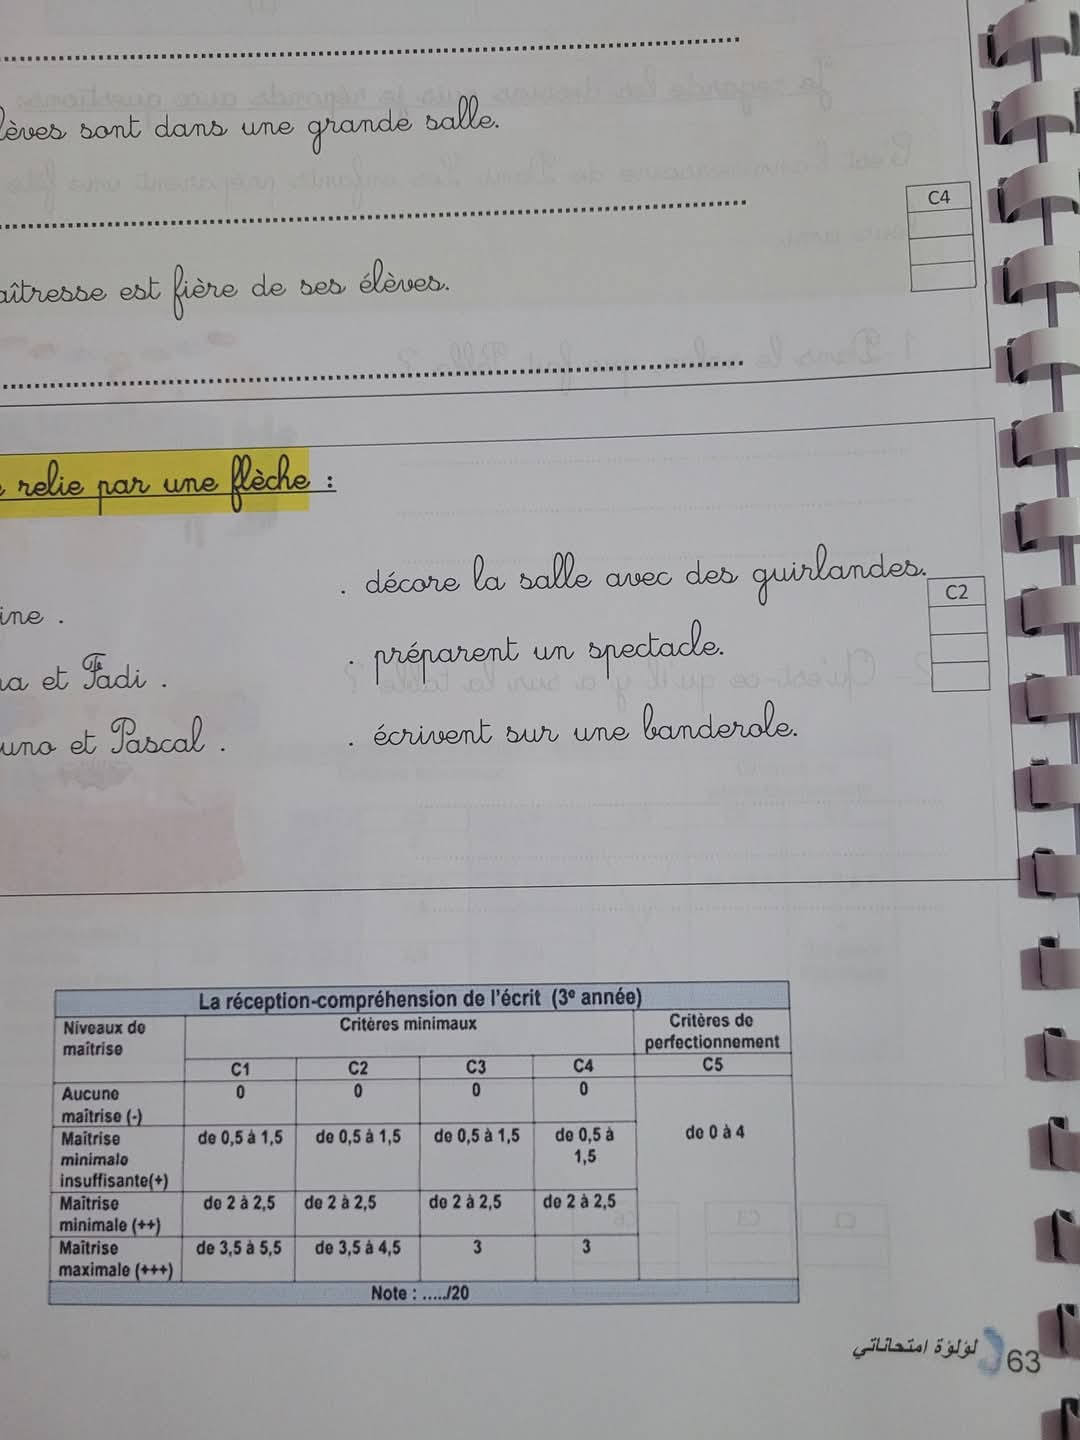 lèves sont dans une grande salle.
C4
aîtresse est fière de ses élèves.
relie par une flèche :
. décore la salle avec des guirlandes.
C2
ine .
. préparent un spectacle.
a et Fadi .
uno et Pascal .
. écrivent sur une banderole.
La réception-compréhension de l'écrit (3e année)
Niveaux de maîtrise
Critères minimaux
Critères de perfectionnement
C1 C2 C3 C4 C5
Aucune maîtrise (-) 0 0 0 0
de 0 à 4
Maîtrise minimale insuffisante(+) de 0,5 à 1,5 de 0,5 à 1,5 de 0,5 à 1,5 de 0,5 à 1,5
Maîtrise minimale (++) de 2 à 2,5 de 2 à 2,5 de 2 à 2,5 de 2 à 2,5
Maîtrise maximale (+++) de 3,5 à 5,5 de 3,5 à 4,5 3 3
Note : ...../20
لؤلؤة امتحاناتي
63